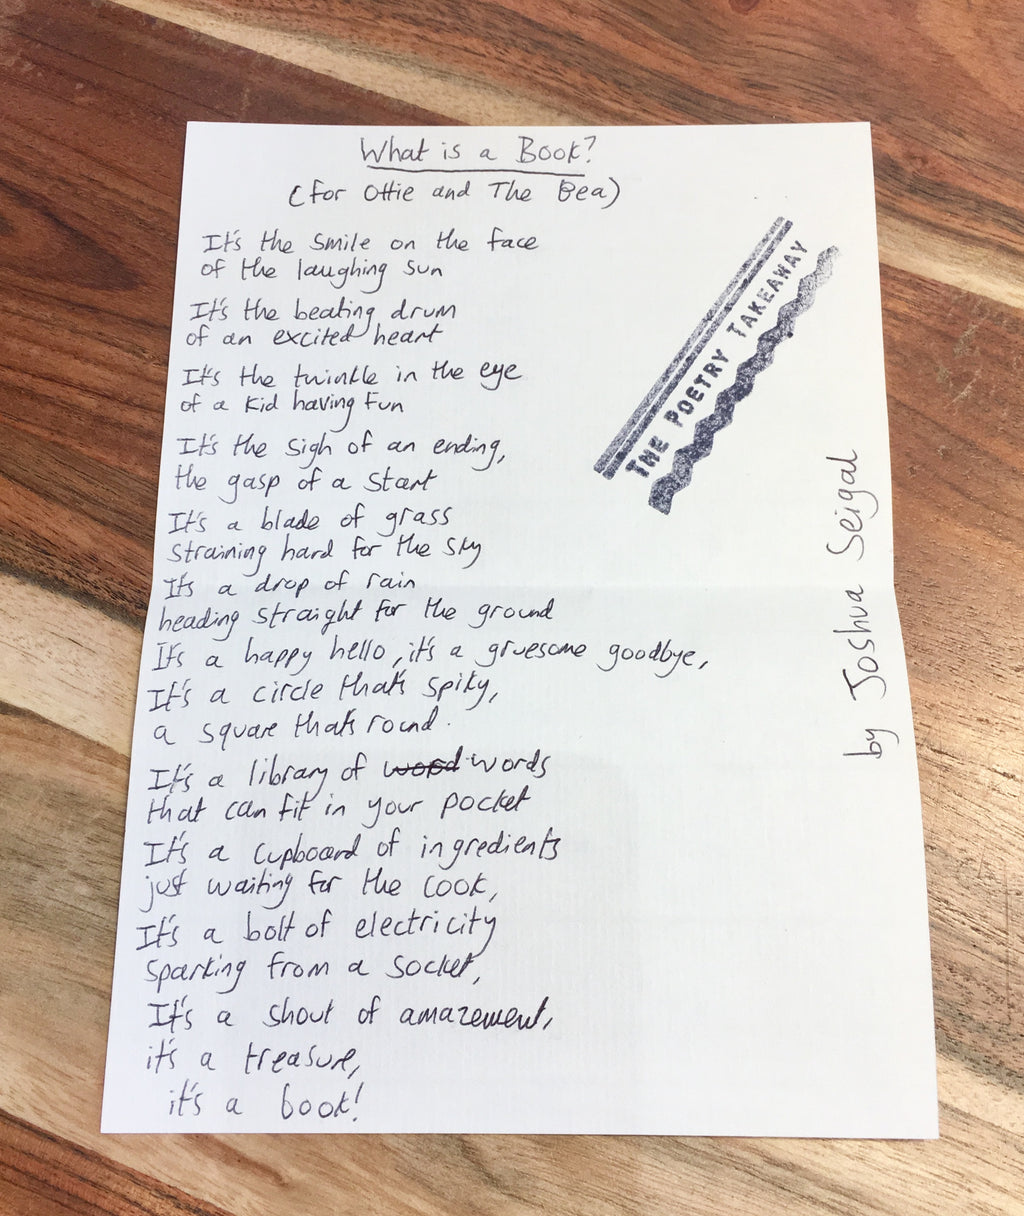 What is a Book?
(for Ottie and The Bea)
It's the smile on the face
of the laughing sun
It's the beating drum
of an excited heart
It's the twinkle in the eye
of a kid having fun
It's the sigh of an ending,
the gasp of a start
It's a blade of grass
straining hard for the sky
It's a drop of rain
heading straight for the ground
It's a happy hello, it's a gruesome goodbye,
It's a circle that's spiky,
a square that's round.
It's a library of word words
that can fit in your pocket
It's a cupboard of ingredients
just waiting for the cook,
It's a bolt of electricity
sparking from a socket,
It's a shout of amazement,
it's a treasure,
it's a book!
THE POETRY TAKEAWAY
by Joshua Seigal